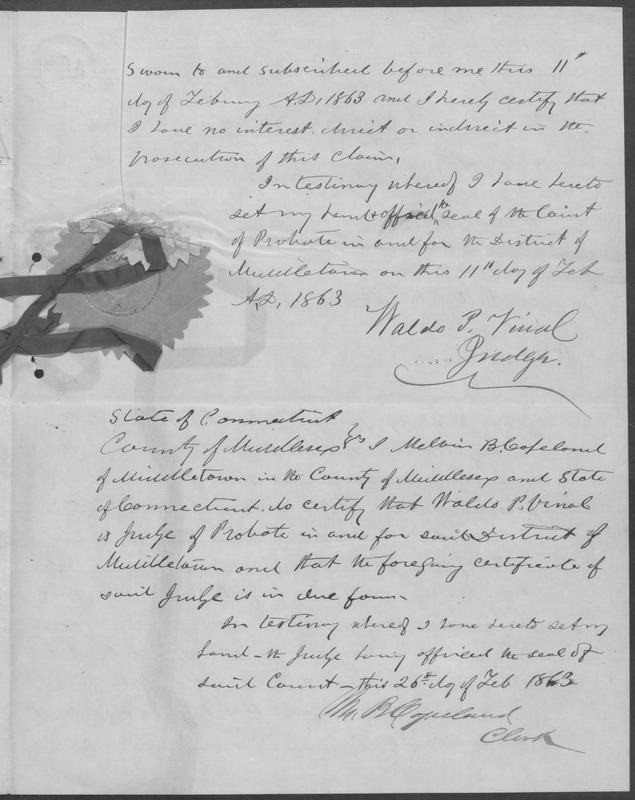 Sworn to and subscribed before me this 11th
day of February A.D, 1863 and I hereby certify that
I have no interest, direct or indirect in the
prosecution of this Claim,
In testimony whereof I have hereto
set my hand & official the seal of the Court
of Probate in and for the District of
Middletown on this 11th day of Feb
A,D, 1863
Waldo P. Vinal
Judge.
State of Connecticut
County of Middlesex ss I Melvin B. Copeland
of Middletown in the County of Middlesex and State
of Connecticut. do certify that Waldo P. Vinal
is Judge of Probate in and for said District of
Middletown and that the foregoing certificate of
said Judge is in due form -
In testimony whereof I have hereto set my
hand - the Judge having affixed the seal of
said Court - this 26th day of Feb 1863
M. B. Copeland
Clerk